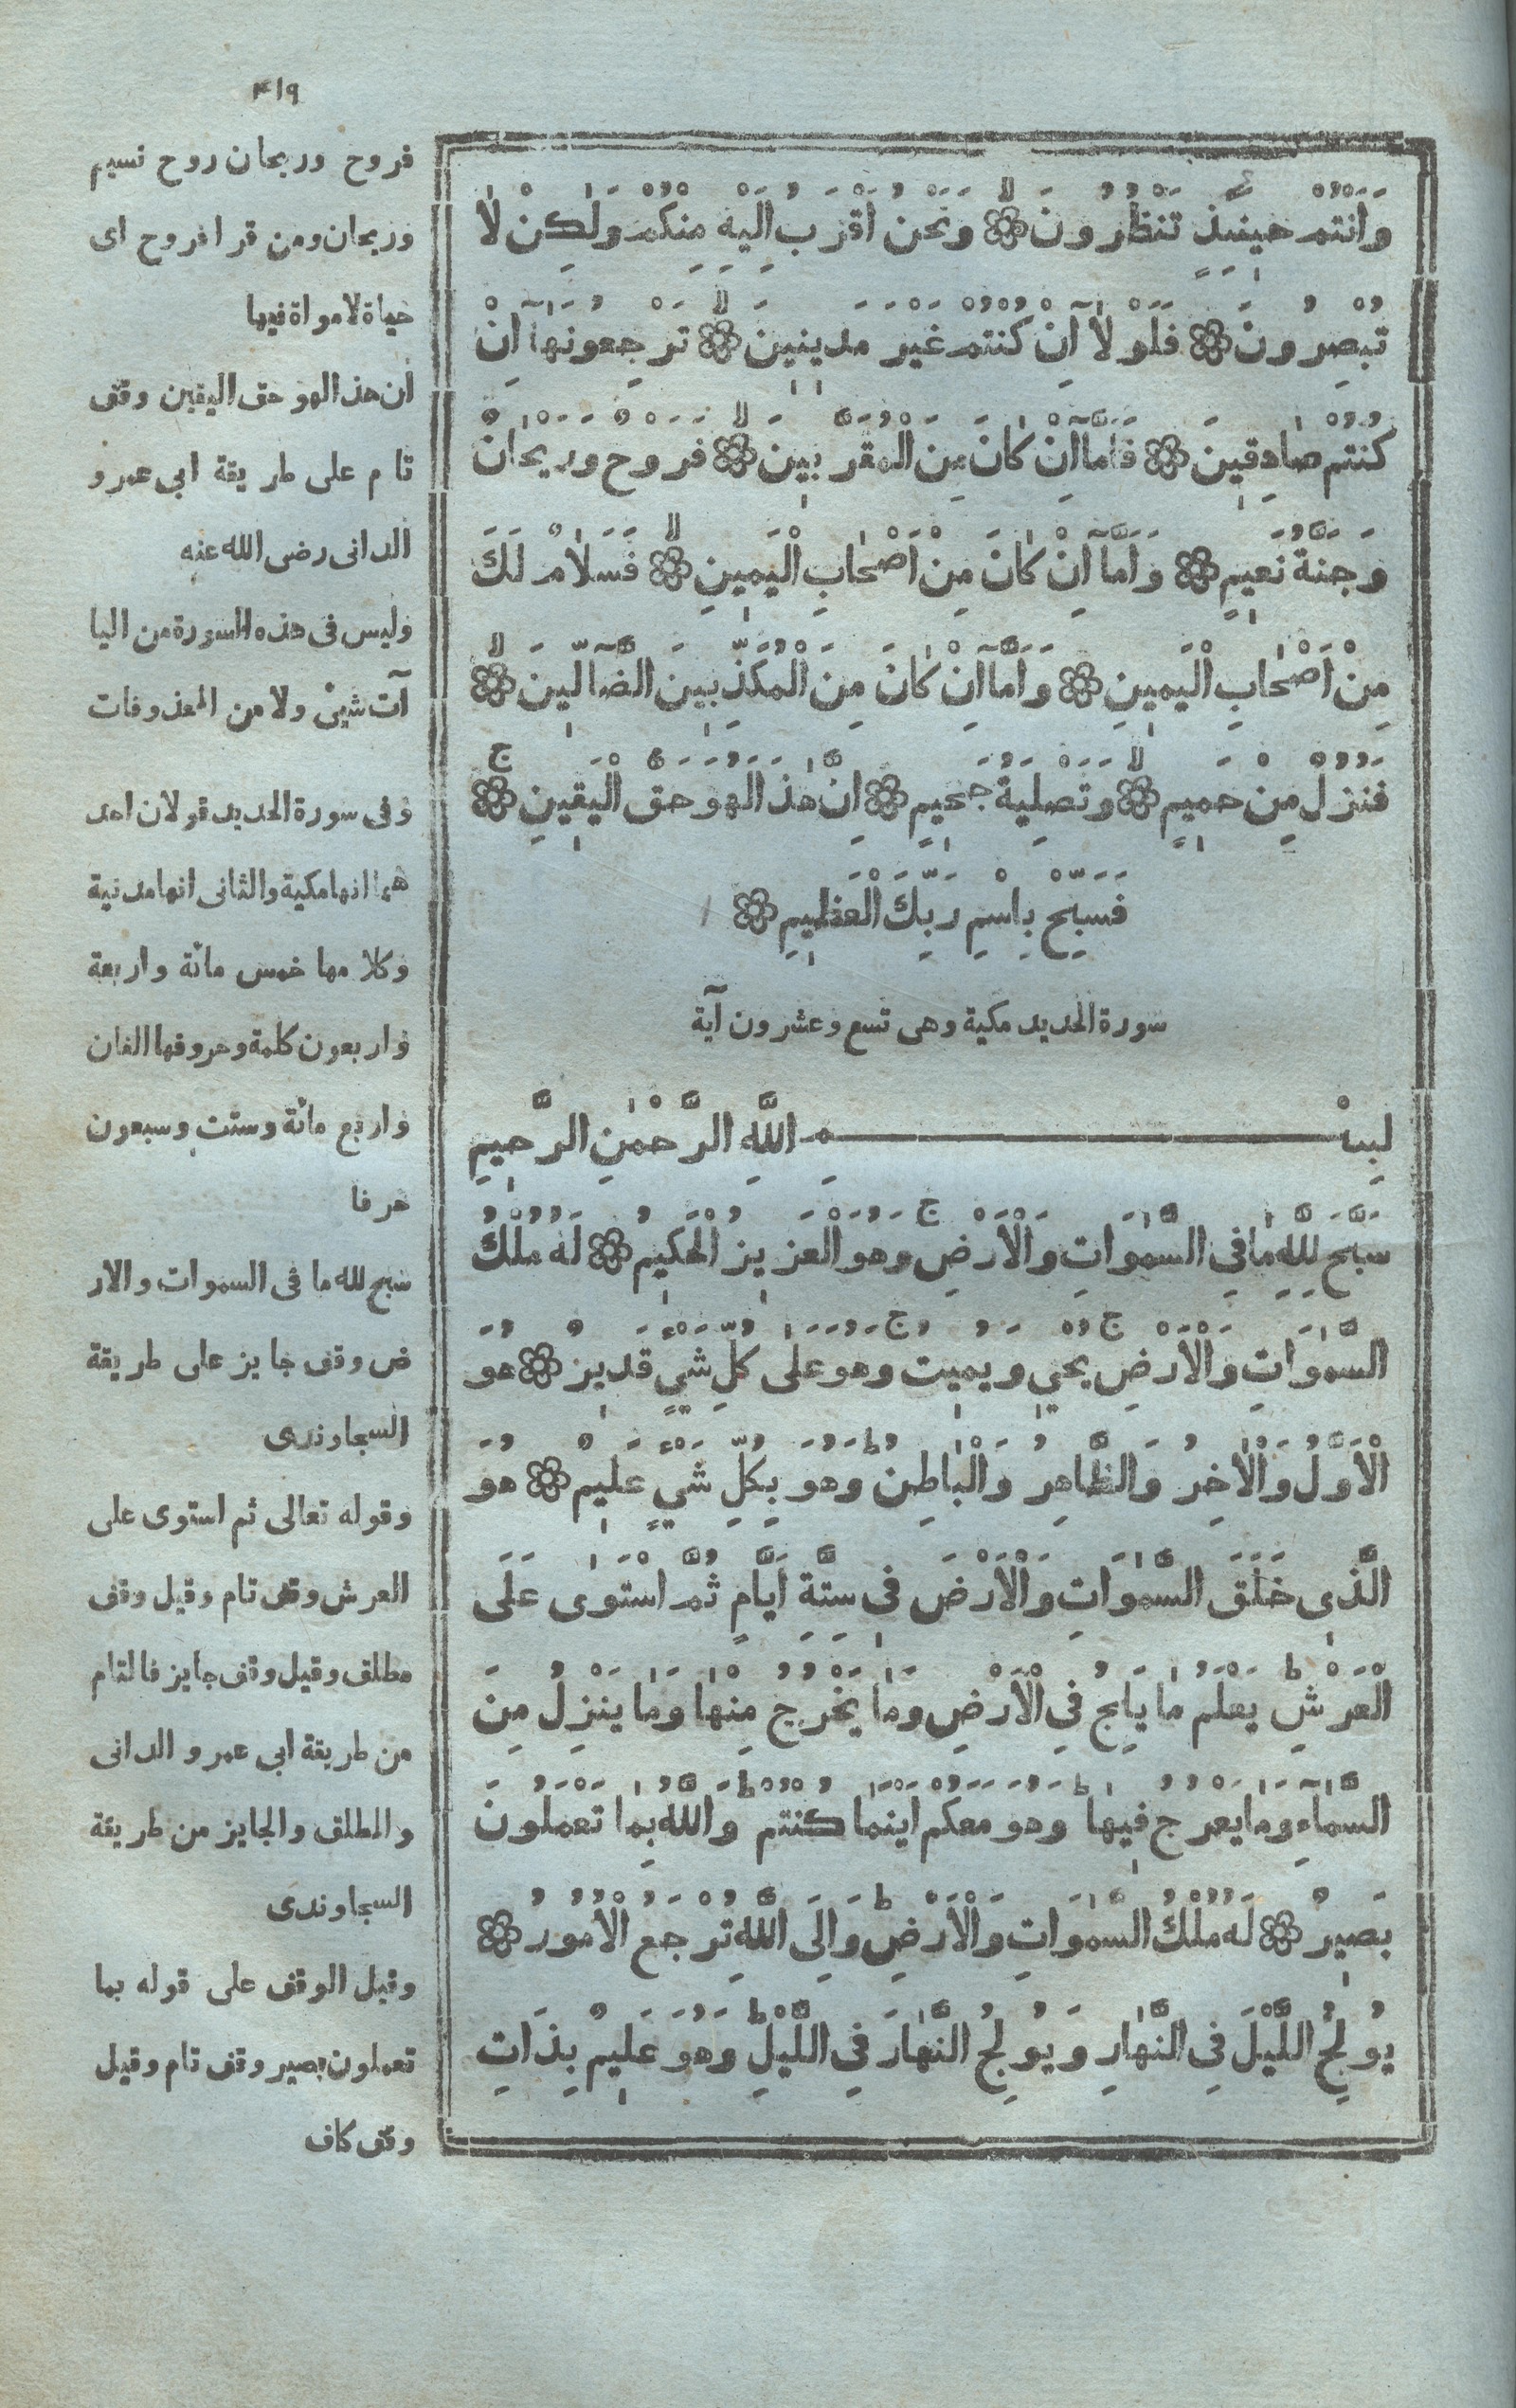 ٤١٩
وَاَنْتُمْ حِينَئِذٍ تَنْظُرُونَ ۙ وَنَحْنُ اَقْرَبُ اِلَيْهِ مِنْكُمْ وَلٰكِنْ لَا
تُبْصِرُونَ فَلَوْلَاۤ اِنْ كُنْتُمْ غَيْرَ مَدِينِينَ ۙ تَرْجِعُونَهَاۤ اِنْ
كُنْتُمْ صَادِقِينَ فَاَمَّاۤ اِنْ كَانَ مِنَ الْمُقَرَّبِينَ ۙ فَرَوْحٌ وَرَيْحَانٌ
وَجَنَّةُ نَعِيمٍ وَاَمَّاۤ اِنْ كَانَ مِنْ اَصْحَابِ الْيَمِينِ ۙ فَسَلَامٌ لَكَ
مِنْ اَصْحَابِ الْيَمِينِ وَاَمَّاۤ اِنْ كَانَ مِنَ الْمُكَذِّبِينَ الضَّاۤلِّينَ ۙ
فَنُزُلٌ مِنْ حَمِيمٍ ۙ وَتَصْلِيَةُ جَحِيمٍ اِنَّ هٰذَا لَهُوَ حَقُّ الْيَقِينِ ۚ
فَسَبِّحْ بِاسْمِ رَبِّكَ الْعَظِيمِ
سورة الحديد مكية وهى تسع وعشرون آية
بِسْمِ اللَّهِ الرَّحْمٰنِ الرَّحِيمِ
سَبَّحَ لِلَّهِ مَا فِى السَّمٰوَاتِ وَالْاَرْضِ ۚ وَهُوَ الْعَزِيزُ الْحَكِيمُ لَهُ مُلْكُ
السَّمٰوَاتِ وَالْاَرْضِ ۚ يُحْيِي وَيُمِيتُ ۚ وَهُوَ عَلٰى كُلِّ شَيْءٍ قَدِيرٌ هُوَ
الْاَوَّلُ وَالْاٰخِرُ وَالظَّاهِرُ وَالْبَاطِنُ ۚ وَهُوَ بِكُلِّ شَيْءٍ عَلِيمٌ هُوَ
الَّذِى خَلَقَ السَّمٰوَاتِ وَالْاَرْضَ فِى سِتَّةِ اَيَّامٍ ثُمَّ اسْتَوٰى عَلَى
الْعَرْشِ ؕ يَعْلَمُ مَا يَلِجُ فِى الْاَرْضِ وَمَا يَخْرُجُ مِنْهَا وَمَا يَنْزِلُ مِنَ
السَّمَاۤءِ وَمَا يَعْرُجُ فِيهَا ؕ وَهُوَ مَعَكُمْ اَيْنَمَا كُنْتُمْ ؕ وَاللَّهُ بِمَا تَعْمَلُونَ
بَصِيرٌ لَهُ مُلْكُ السَّمٰوَاتِ وَالْاَرْضِ ؕ وَاِلَى اللَّهِ تُرْجَعُ الْاُمُورُ
يُولِجُ اللَّيْلَ فِى النَّهَارِ وَيُولِجُ النَّهَارَ فِى اللَّيْلِ ؕ وَهُوَ عَلِيمٌ بِذَاتِ
فروح وريحان روح نسيم
وريحان ومن قرا فروح اى
حياة لا مواة فيها
ان هذا لهو حق اليقين وقف
تام على طريقة ابى عمرو
الدانى رضى الله عنه
وليس فى هذه السورة من اليا
آت شيئ ولا من المحذوفات
وفى سورة الحديد قولان احد
هما انها مكية والثانى انها مدنية
وكلامها خمس مائة واربعة
واربعون كلمة وحروفها الفان
واربع مائة وست وسبعون
حرفا
سبح لله ما فى السموات والار
ض وقف جايز على طريقة
السجاوندى
وقوله تعالى ثم استوى على
العرش وقف تام وقيل وقف
مطلق وقيل وقف جايز فالتام
من طريقة ابى عمرو الدانى
والمطلق والجايز من طريقة
السجاوندى
وقيل الوقف على قوله بما
تعملون بصير وقف تام وقيل
وقف كاف